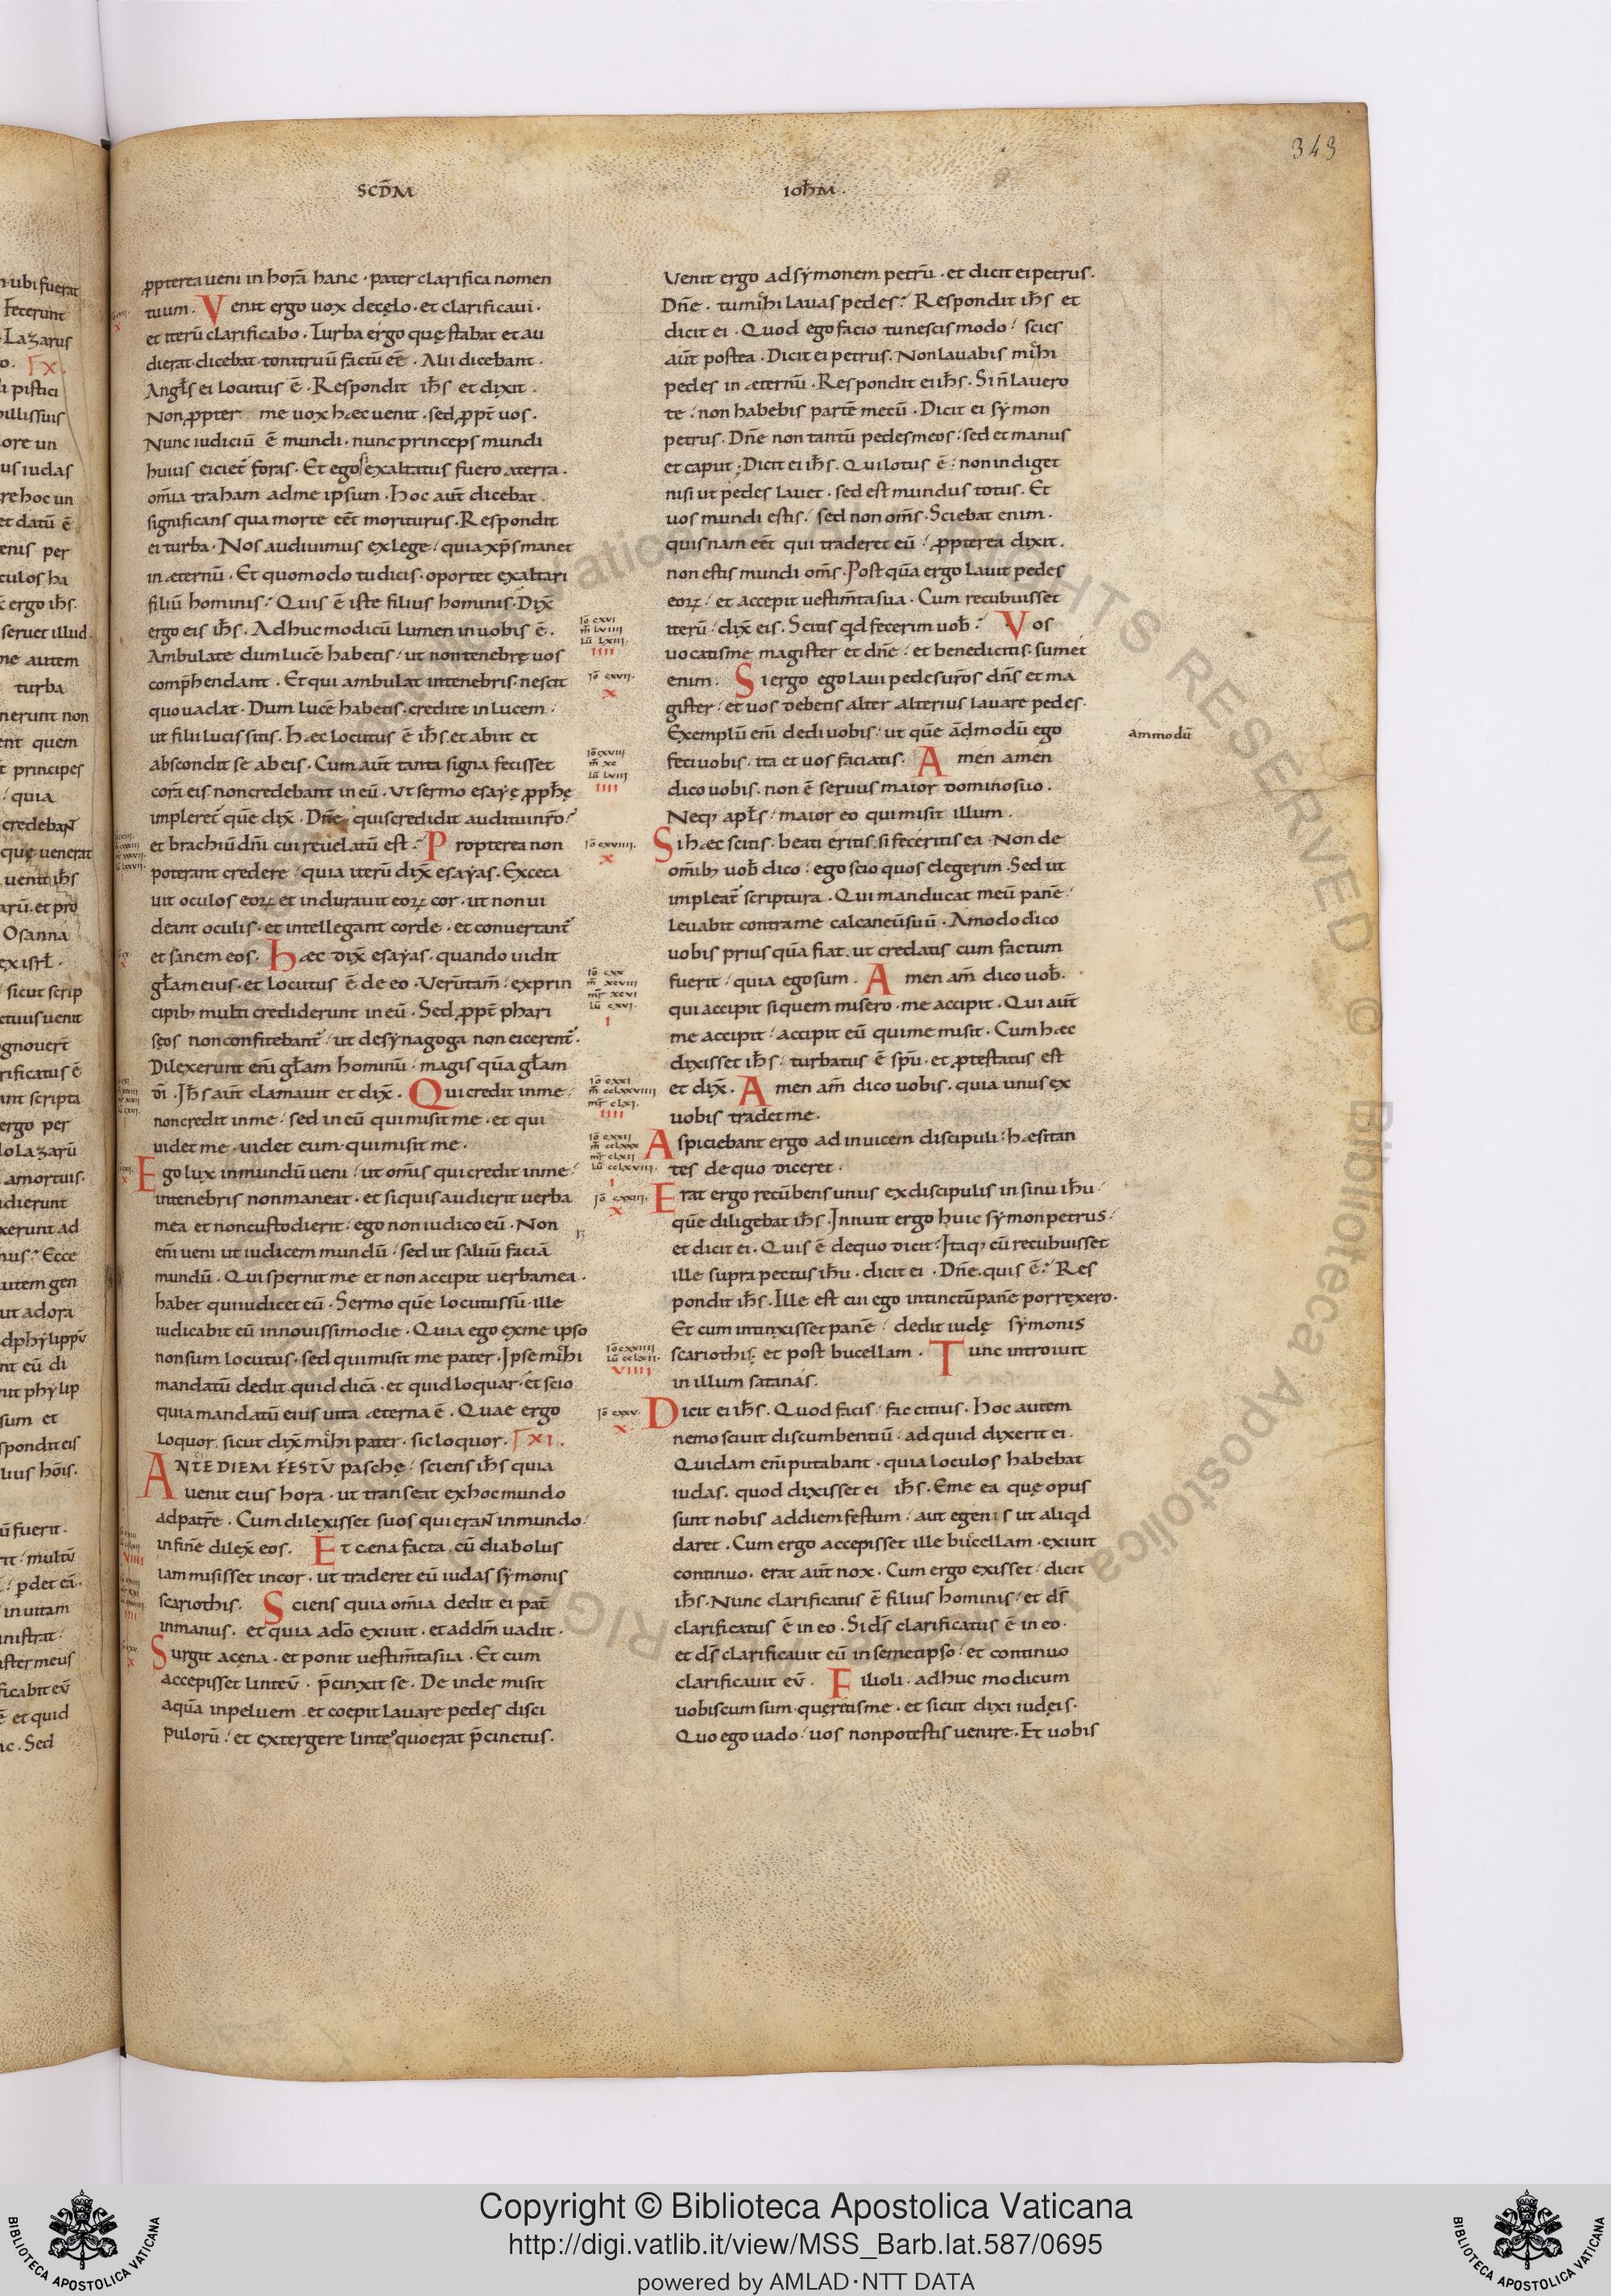 343
SCD̄M
IOH̄M.
ꝓpterea ueni in horā hanc · pater clarifica nomen
tuum. Venit ergo uox de cęlo · et clarificaui ·
et iterū clarificabo. Turba ergo quę stabat et au
dierat · dicebat tonitruū factū eē̄. Alii dicebant ·
Angl̄s ei locutus ē. Respondit ih̄s et dixit.
Non ꝓpter me uox hæc uenit · sed ꝓpt̄ uos.
Nunc iudiciū ē mundi · nunc princeps mundi
huius eiciet̄ foras. Et ego si exaltatus fuero a terra.
om̄ia traham ad me ipsum. Hoc aut̄ dicebat
significans qua morte eēt moriturus. Respondit
ei turba. Nos audiuimus ex lege quia xp̄s manet
in æternū. Et quomodo tu dicis · oportet exaltari
filiū hominis? Quis ē iste filius hominis. Dix̄
ergo eis ih̄s. Adhuc modicū lumen in uobis ē.
Ambulate dum lucē habetis ut non tenebrę uos
comp̄hendant. Et qui ambulat in tenebris nescit
quo uadat. Dum lucē habetis · credite in lucem
ut filii lucis sitis. Hæc locutus ē ih̄s · et abiit et
abscondit se ab eis. Cum aut̄ tanta signa fecisset
corā eis · non credebant in eū. Ut sermo esayę ꝓph̄ę
impleret̄ quē dix̄. Dn̄e quis credidit auditui nr̄o?
et brachiū dn̄i cui reuelatū est? Propterea non
poterant credere quia iterū dix̄ esayas. Exceca
uit oculos eoꝝ et indurauit eoꝝ cor · ut non ui
deant oculis · et intellegant corde · et conuertant̄
et sanem eos. Hæc dix̄ esayas · quando uidit
gl̄am eius · et locutus ē de eo. Uerūtam̄ ex prin
cipib; multi crediderunt in eū. Sed ꝓpt̄ phari
sęos non confitebant̄ ut de synagoga non eicerent̄.
Dilexerunt eni gl̄am hominū magis quā gl̄am
dī. Ih̄s aut̄ clamauit et dix̄. Qui credit in me
non credit in me sed in eū qui misit me · et qui
uidet me · uidet eum qui misit me.
Ego lux in mundū ueni ut om̄is qui credit in me
in tenebris non maneat · et si quis audierit uerba
mea et non custodierit ego non iudico eū. Non
eni ueni ut iudicem mundū sed ut saluū faciā
mundū. Qui spernit me et non accipit uerba mea ·
habet qui iudicet eū. Sermo quē locutus sū · ille
iudicabit eū in nouissimo die. Quia ego ex me ipso
non sum locutus · sed qui misit me pater. Ipse mihi
mandatū dedit quid dicā · et quid loquar · et scio
quia mandatū eius uita æterna ē. Quae ergo
loquor sicut dix̄ mihi pater · sic loquor. XI.
ANTE DIEM FESTŪ paschę sciens ih̄s quia
uenit eius hora · ut transeat ex hoc mundo
ad patrē. Cum dilexisset suos qui erant in mundo
in finē dilex̄ eos. Et cæna facta cū diabolus
iam misisset in cor · ut traderet eū iudas symonis
scariothis. Sciens quia om̄ia dedit ei pat̄
in manus · et quia a do exiuit · et ad dm̄ uadit.
Surgit a cęna · et ponit uestim̄ta sua. Et cum
accepisset linteū p̄cinxit se. De inde misit
aquā in peluem et coepit lauare pedes disci
pulorū et extergere linteo quo erat p̄cinctus.
Iō cxvi
m̄ lviiii
Lū lxiii
IIII
Iō cxvii.
X
Iō cxviii
m̄ xc
Lū lviii
IIII
Iō cxviiii.
X
Iō cxx
m̄ xcviii
mr̄ xcvi
Lū cxvi.
I
Iō cxxi
m̄ cclxxviiii
mr̄ clxi.
IIII
Iō cxxii
m̄ cclxxx
mr̄ clxii
Lū cclxviii.
I
Iō cxxiii.
X
Iō cxxiiii
Lū cclxii.
VIIII
Iō cxxv.
X
Uenit ergo ad symonem petrū · et dicit ei petrus.
Dn̄e · tu mihi lauas pedes? Respondit ih̄s et
dicit ei. Quod ego facio tu nescis modo scies
aut̄ postea. Dicit ei petrus. Non lauabis mihi
pedes in æternū. Respondit ei ih̄s. Si n̄ lauero
te non habebis partē mecū. Dicit ei symon
petrus. Dn̄e non tantū pedes meos sed et manus
et caput. Dicit ei ih̄s. Qui lotus ē non indiget
nisi ut pedes lauet · sed est mundus totus. Et
uos mundi estis sed non om̄s. Sciebat enim
quis nam eēt qui traderet eū ꝓpterea dixit.
non estis mundi om̄s. Post quā ergo lauit pedes
eoꝝ et accepit uestim̄ta sua. Cum recubuisset
iterū dix̄ eis. Scitis qd fecerim uob̄? Vos
uocatis me magister et dn̄e et benedicitis · sum et
enim. Si ergo ego laui pedes uros dn̄s et ma
gister et uos debetis alter alterius lauare pedes.
Exemplū eni dedi uobis ut quē ādmodū ego
ammodū
feci uobis · ita et uos faciatis. Amen amen
dico uobis · non ē seruus maior domino suo.
Neq; apl̄s maior eo qui misit illum.
Si hæc scitis · beati eritis si feceritis ea. Non de
omīb; uob̄ dico ego scio quos elegerim. Sed ut
impleat̄ scriptura. Qui manducat meū panē
leuabit contra me calcaneū suū. Amodo dico
uobis prius quā fiat · ut credatis cum factum
fuerit quia ego sum. Amen am̄ dico uob̄.
qui accipit si quem misero · me accipit. Qui aut̄
me accipit accipit eū qui me misit. Cum hæc
dixisset ih̄s turbatus ē sp̄u · et ꝓtestatus est
et dix̄. Amen am̄ dico uobis · quia unus ex
uobis tradet me.
Aspiciebant ergo ad inuicem discipuli hæsitan
tes de quo diceret.
Erat ergo recūbens unus ex discipulis in sinu ih̄u
quē diligebat ih̄s. Innuit ergo huic symon petrus
et dicit ei. Quis ē de quo dicit? Itaq; cū recubuisset
ille supra pectus ih̄u · dicit ei. Dn̄e quis ē? Res
pondit ih̄s. Ille est cui ego intinctū panē porrexero.
Et cum intinxisset panē dedit iudę symonis
scariothis · et post bucellam. Tunc introiuit
in illum satanas.
Dicit ei ih̄s. Quod facis fac citius. Hoc autem
nemo sciuit discumbentiū ad quid dixerit ei.
Quidam eni putabant · quia loculos habebat
iudas · quod dixisset ei ih̄s. Eme ea quę opus
sunt nobis ad diem festum aut egenis ut aliqd
daret. Cum ergo accepisset ille bucellam · exiuit
continuo · erat aut̄ nox. Cum ergo exisset dicit
ih̄s. Nunc clarificatus ē filius hominis et ds̄
clarificatus ē in eo. Si ds̄ clarificatus ē in eo
et ds̄ clarificauit eū in semetipso et continuo
clarificauit eū. Filioli · adhuc modicum
uobiscum sum · quęritis me · et sicut dixi iudęis.
Quo ego uado uos non potestis uenire. Et uobis
Copyright © Biblioteca Apostolica Vaticana
http://digi.vatlib.it/view/MSS_Barb.lat.587/0695
powered by AMLAD·NTT DATA
BIBLIOTECA APOSTOLICA VATICANA
BIBLIOTECA APOSTOLICA VATICANA